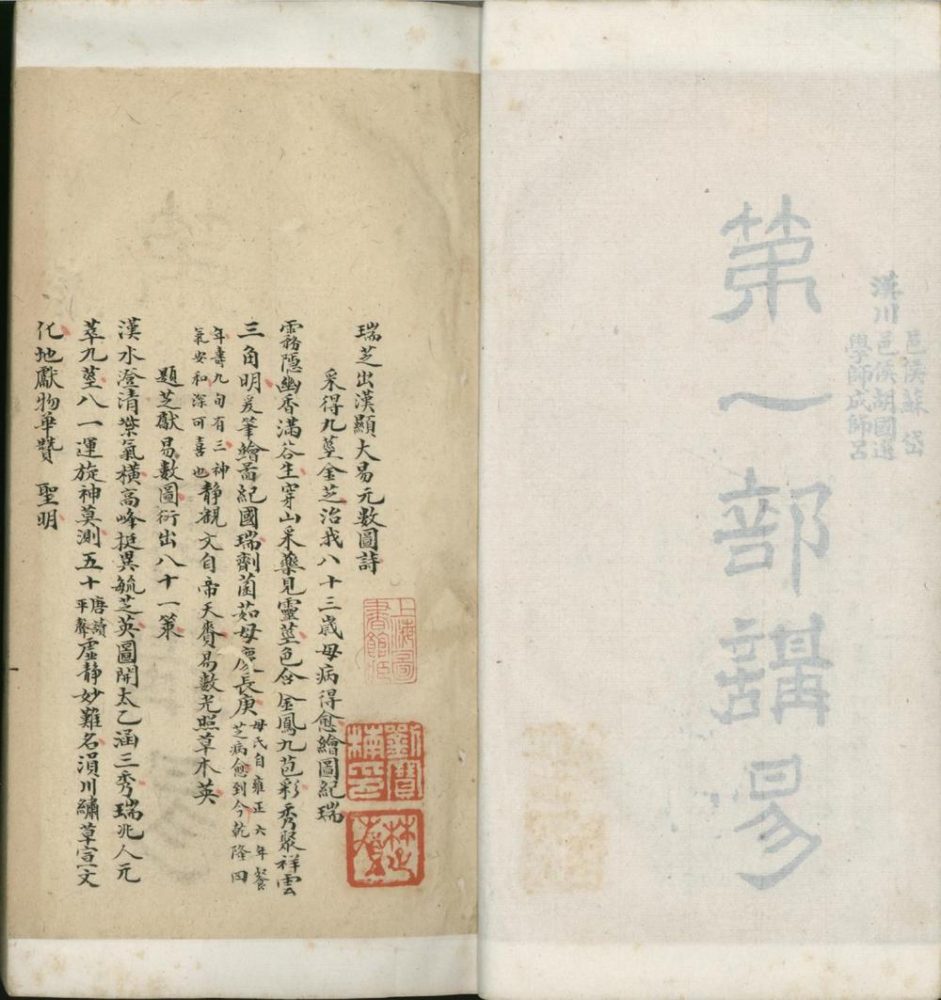 邑侯蘇岱
漢川邑侯胡國選
學師成師呂
第一部講易
瑞芝出漢顯大易元數圖詩
采得九莖金芝治我八十三歲母病得愈繪圖紀瑞
霧隱幽香滿谷生穿山采藥見靈莖色含金鳳九苞彩秀聚祥雲
三角明爰筆繪圖紀國瑞劑菌茹母慶長庚母氏自雍正六年餐
芝病愈到今乾隆四
年壽九旬有三神
氣安和深可喜也靜觀文自帝天賚易數光照草木英
題芝獻易數圖衍出八十一策
漢水澄清紫氣橫高峰挺異毓芝英圖開太乙涵三秀瑞兆人元
萃九莖八一運旋神莫測五十唐讀
平聲虛靜妙難名溳川繡草宣文
化地獻物華贊 聖明
上海圖書館藏